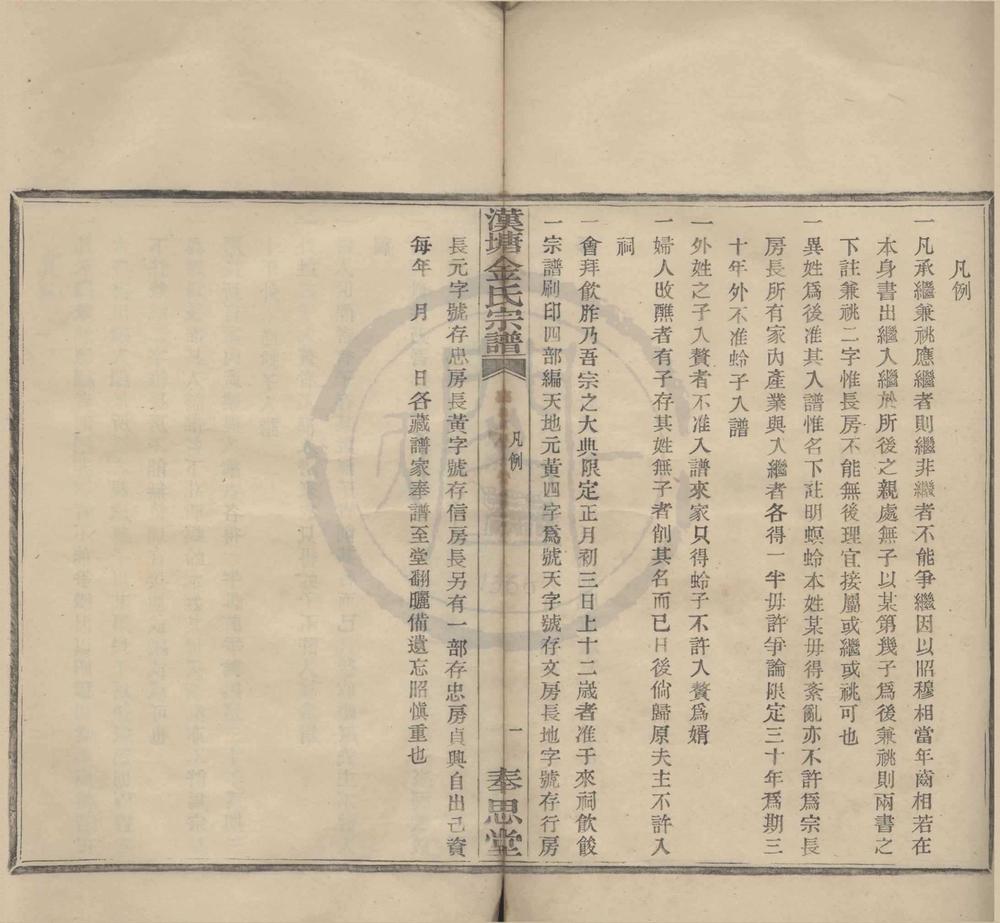 凡例
一凡承繼兼祧應繼者則繼非繼者不能爭繼因以昭穆相當年齒相若在
本身書出繼入繼於所後之親處無子以某第幾子爲後兼祧則兩書之
下註兼祧二字惟長房不能無後理宜接屬或繼或祧可也
一異姓爲後准其入譜惟名下註明螟蛉本姓某毋得紊亂亦不許爲宗長
房長所有家內產業與入繼者各得一半毋許爭論限定三十年爲期三
十年外不准蛉子入譜
一外姓之子入贅者不准入譜來家只得蛉子不許入贅爲婿
一婦人改醮者有子存其姓無子者削其名而已日後倘歸原夫主不許入
祠
一會拜飲胙乃吾宗之大典限定正月初三日上十二歲者准于來祠飲餕
一宗譜刷印四部編天地元黃四字爲號天字號存文房長地字號存行房
漢塘金氏宗譜
凡例
一
奉思堂
長元字號存忠房長黃字號存信房長另有一部存忠房貞興自出己資
每年 月 日各藏譜家奉譜至堂翻曬備遺忘昭慎重也